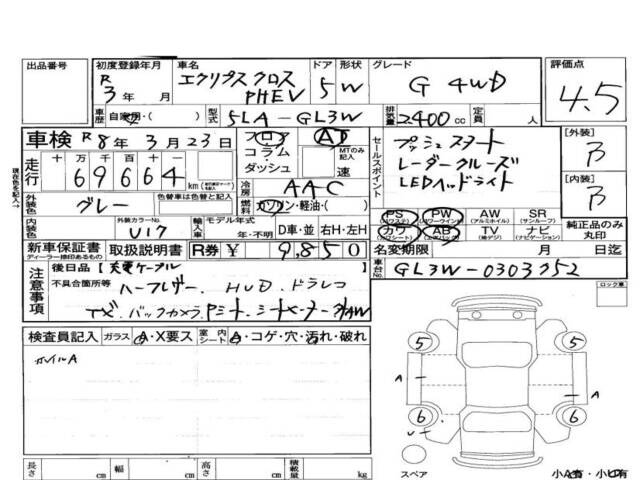 出品番号
初度登録年月
R
3年 月
車名
エクリプスクロス
PHEV
ドア 形状
5 W
グレード
G 4WD
評価点
4.5
車歴 自家用・( )
型式 5LA-GL3W
排気量 2400cc
定員 人
車検 R 8年 3月 23日
シフト
フロア
コラム
ダッシュ
AT
MTのみ記入
速
セールスポイント
プッシュスタート
レーダークルーズ
LEDヘッドライト
[外装]
B
[内装]
B
走行
十 万 千 百 十 一
6 9 6 6 4
km
冷房 AAC
外装色 グレー
色替車は色替と記入
燃料 ガソリン・軽油・( )
内装色
外装カラーNo.
U17
輸入車
モデル年式
年・不明
D車・並
右H・左H
PS (パワステ)
PW (パワーウインド)
AW (アルミホイル)
SR (サンルーフ)
カワ (カワシート)
AB (エアバッグ)
TV (純デジ)
ナビ (純ナビ)
純正品のみ
丸印
新車保証書
ディーラー捺印あるもの
取扱説明書
R券 ¥ 9,850
名変期限 月 日迄
車台No. GL3W-0303752
注意事項
後日品【充電ケーブル
不具合箇所等 ハーフレザー HUD ドラレコ
TV、バックカメラ、Pシート、シートヒーター
ロック車
検査員記入
ガラス A・X要ス
室内シート A・コゲ・穴・汚れ・破れ
ホイルA
5 5
A A
6 6
スペア
小A有・小U有
長さ cm
幅 cm
高さ cm
積載量 kg